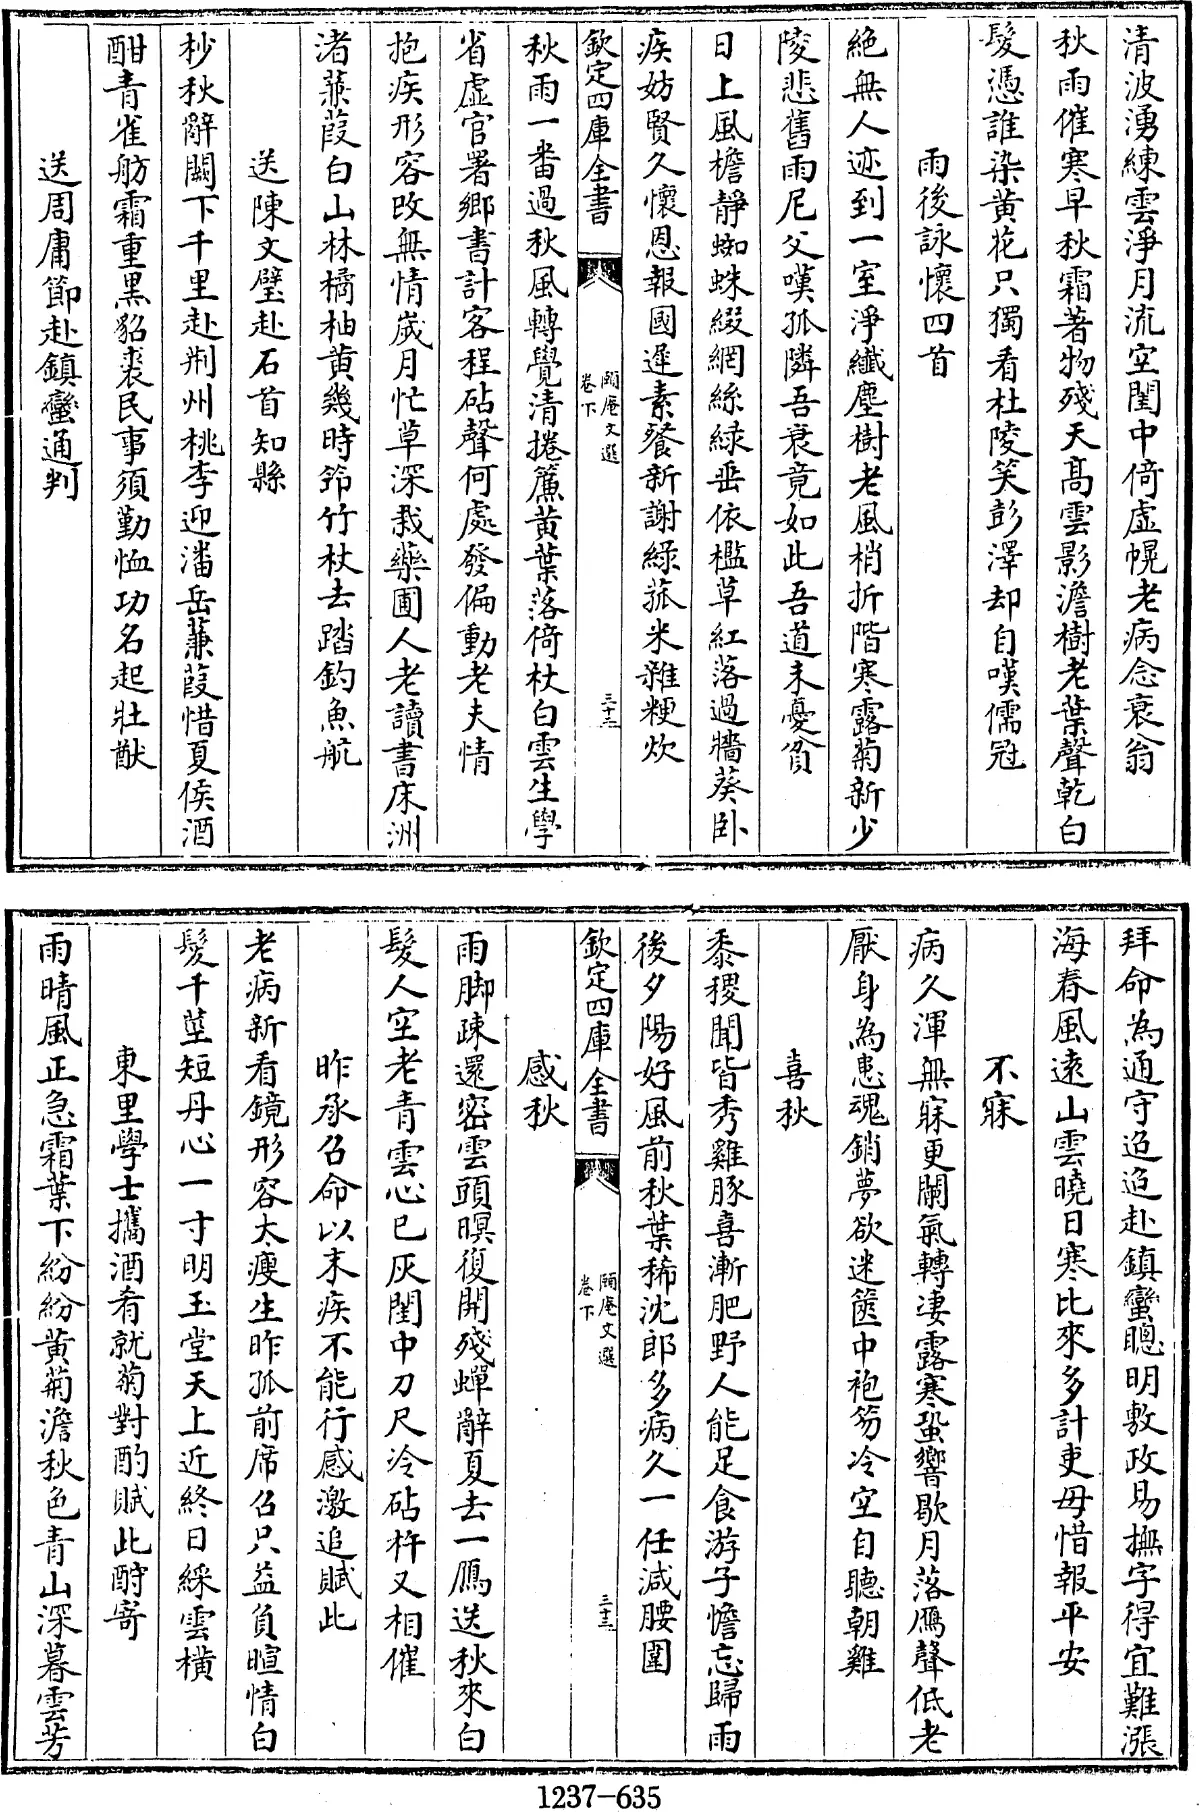 清波湧練雲淨月流空閨中倚虛幌老病念衰翁
秋雨催寒早秋霜著物殘天高雲影澹樹老葉聲乾白
髮憑誰染黄花只獨看杜陵笑彭澤却自嘆儒冠
雨後詠懷四首
絶無人迹到一室淨纎塵樹老風梢折階寒露菊新少
陵悲舊雨尼父嘆孤隣吾衰竟如此吾道未憂貧
日上風檐靜蜘蛛綴網絲緑垂依檻草紅落過牆葵卧
疾妨賢久懷恩報國遲素餐新謝緑菰米雜粳炊
欽定四庫全書
頤庵文選
卷下
三十三
秋雨一番過秋風轉覺清捲簾黄葉落倚杖白雲生學
省虛官署鄉書計客程砧聲何處發偏動老夫情
抱疾形容改無情嵗月忙草深栽藥圃人老讀書床洲
渚蒹葭白山林橘柚黄幾時笻竹杖去踏釣魚航
送陳文璧赴石首知縣
杪秋辭闕下千里赴荆州桃李迎潘岳蒹葭惜夏侯酒
酣青雀舫霜重黑貂裘民事須勤恤功名起壯猷
送周庸節赴鎮蠻通判
拜命為通守迢迢赴鎮蠻聰明敷政易撫字得宜難漲
海春風遠山雲曉日寒比來多計吏毋惜報平安
不寐
病久渾無寐更闌氣轉凄露寒蛩響歇月落鴈聲低老
厭身為患魂銷夢欲迷篋中袍笏冷空自聽朝雞
喜秋
黍稷聞皆秀雞豚喜漸肥野人能足食游子憺忘歸雨
後夕陽好風前秋葉稀沈郎多病久一任減腰圍
欽定四庫全書
頤庵文選
卷下
三十三
感秋
雨脚疎還密雲頭暝復開殘蟬辭夏去一鴈送秋來白
髮人空老青雲心已灰閨中刀尺冷砧杵又相催
昨承召命以末疾不能行感激追賦此
老病新看鏡形容太瘦生昨孤前席召只益負暄情白
髮千莖短丹心一寸明玉堂天上近終日綵雲横
東里學士攜酒肴就菊對酌賦此酧寄
雨晴風正急霜葉下紛紛黄菊澹秋色青山深暮雲芳
1237-635